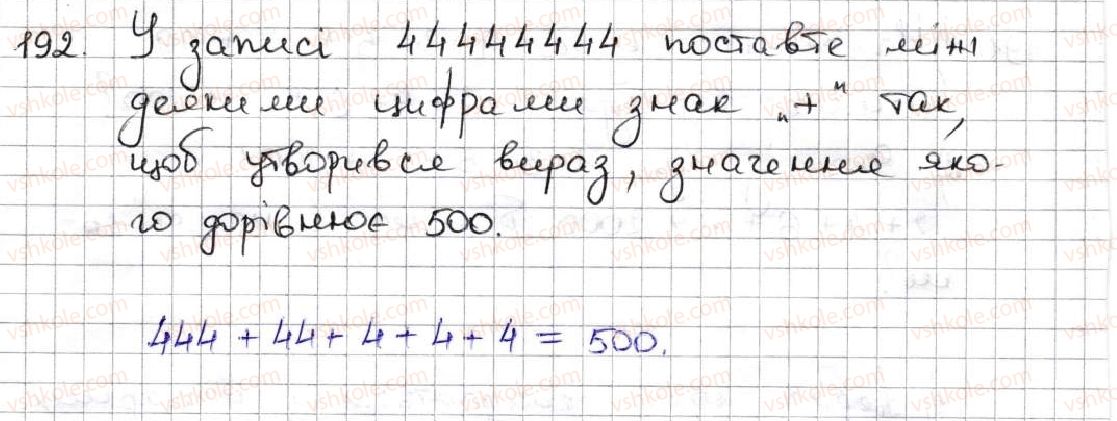 192. У записі 44444444 поставте між
деякими цифрами знак „+" так,
щоб утворився вираз, значення яко-
го дорівнює 500.
444 + 44 + 4 + 4 + 4 = 500.